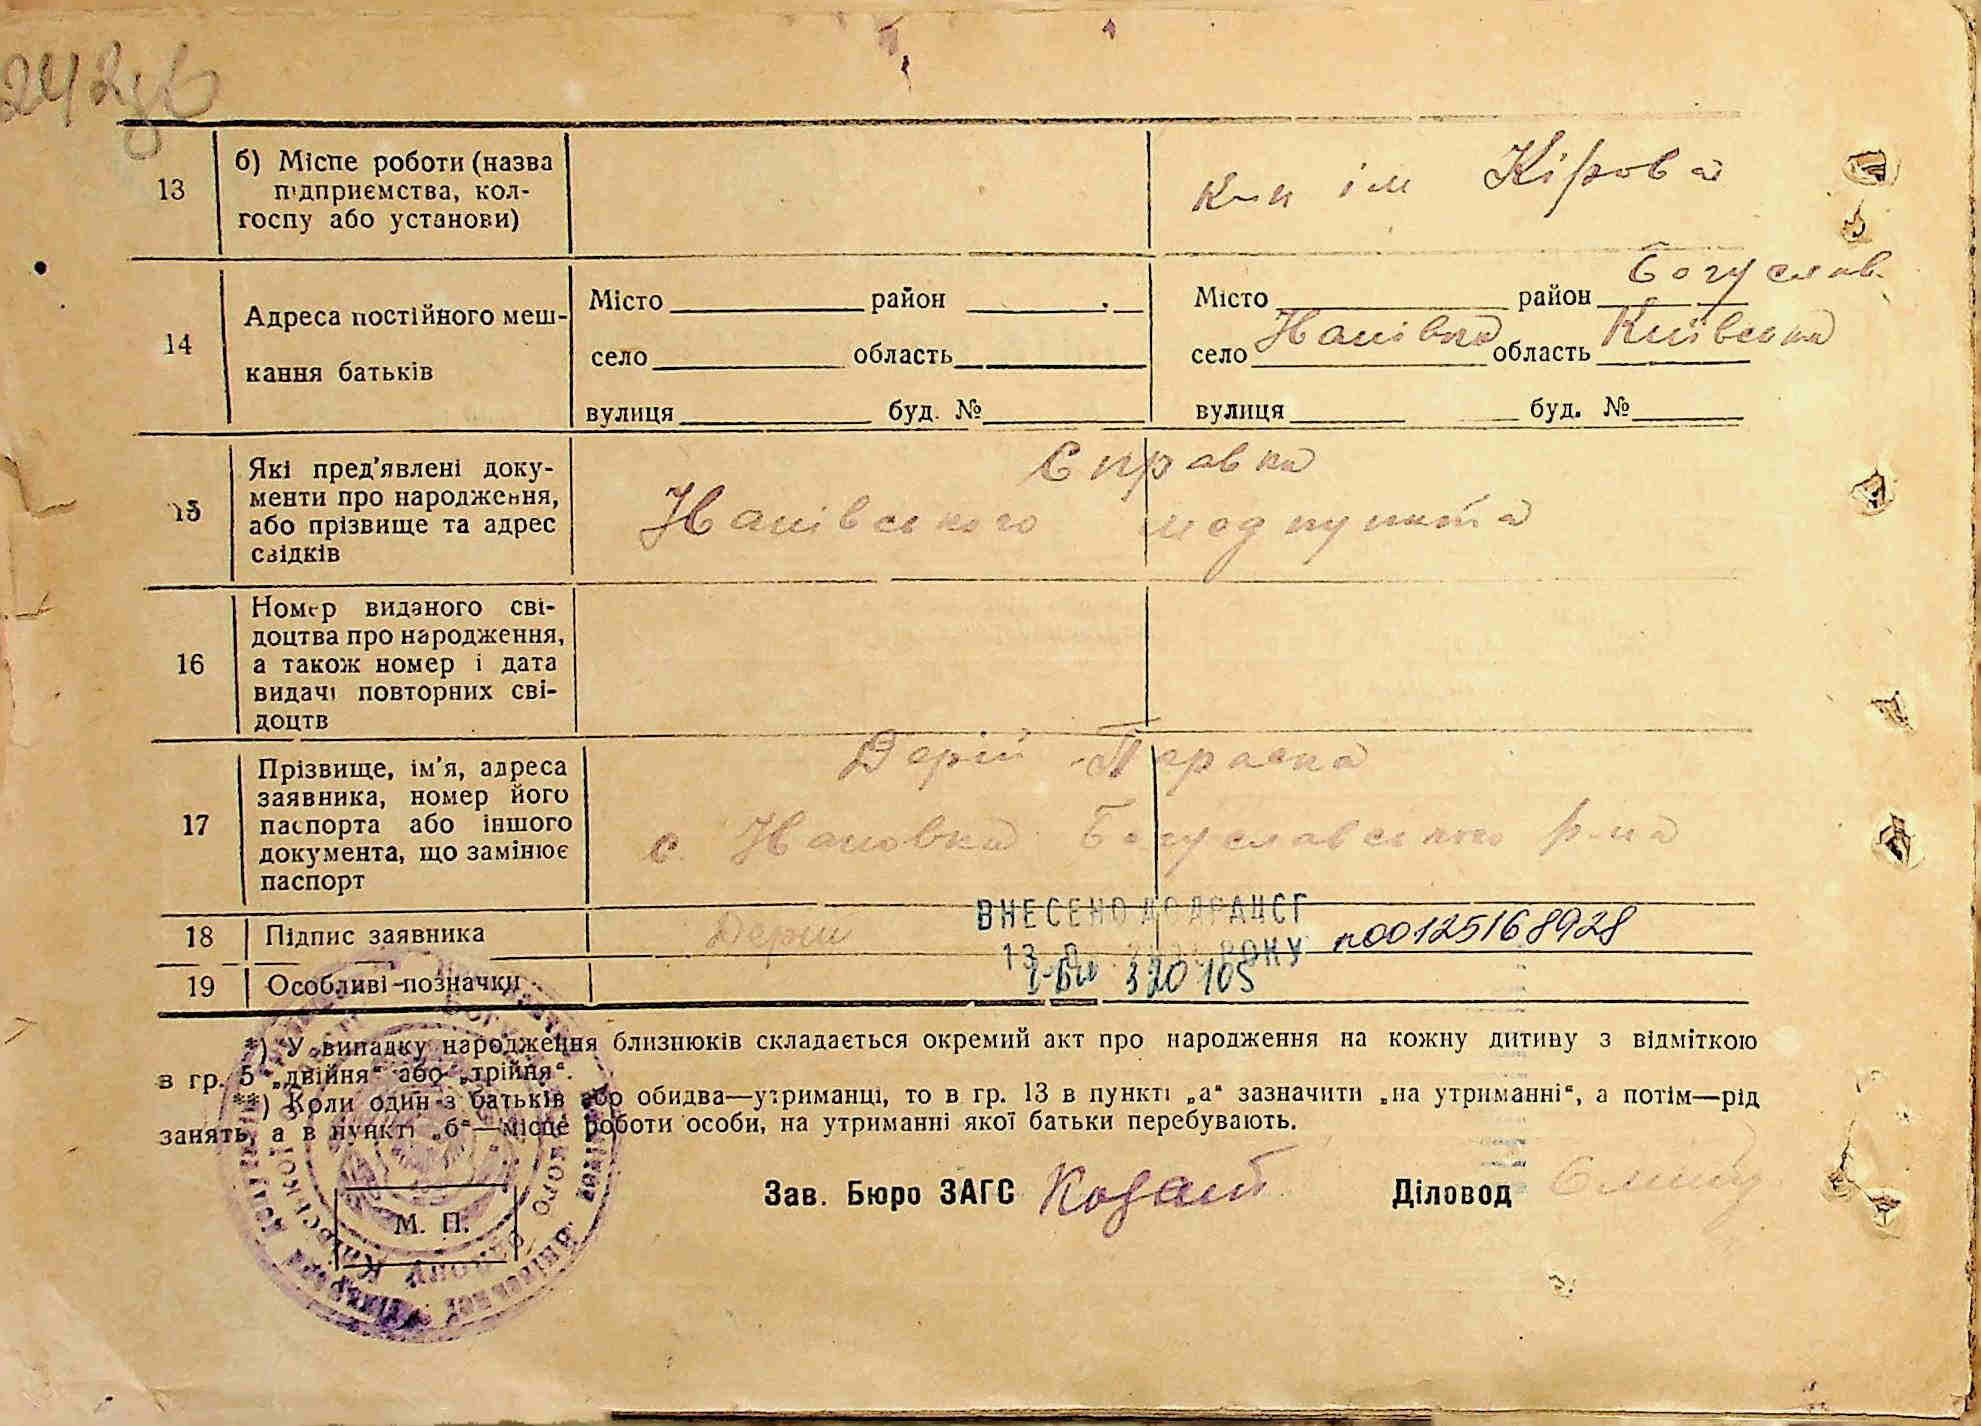 242зв
13
б) Місце роботи (назва
підприємства, кол-
госпу або установи)
к-п ім Кірова
14
Адреса постійного меш-
кання батьків
Місто район
село область
вулиця буд. №
Місто район Богуслав.
село область Київська
вулиця буд. №
15
Які пред'явлені доку-
менти про народження,
або прізвище та адрес
свідків
Справка
медпункта
16
Номер виданого сві-
доцтва про народження,
а також номер і дата
видачі повторних сві-
доцтв
17
Прізвище, ім'я, адреса
заявника, номер його
паспорта або іншого
документа, що замінює
паспорт
Дерій Параска
с. Богуславського р-на
18
Підпис заявника
Дерій
ВНЕСЕНО ДО ДРАЦСГ
РОКУ
n00125168928
19
Особливі позначки
320105
*) У випадку народження близнюків складається окремий акт про народження на кожну дитину з відміткою
в гр. 5 „двійня“ або „трійня“.
**) Коли один з батьків або обидва—утриманці, то в гр. 13 в пункті „а“ зазначити „на утриманні“, а потім—рід
занять, а в пункті „б“—місце роботи особи, на утриманні якої батьки перебувають.
Зав. Бюро ЗАГС Діловод
М. П.